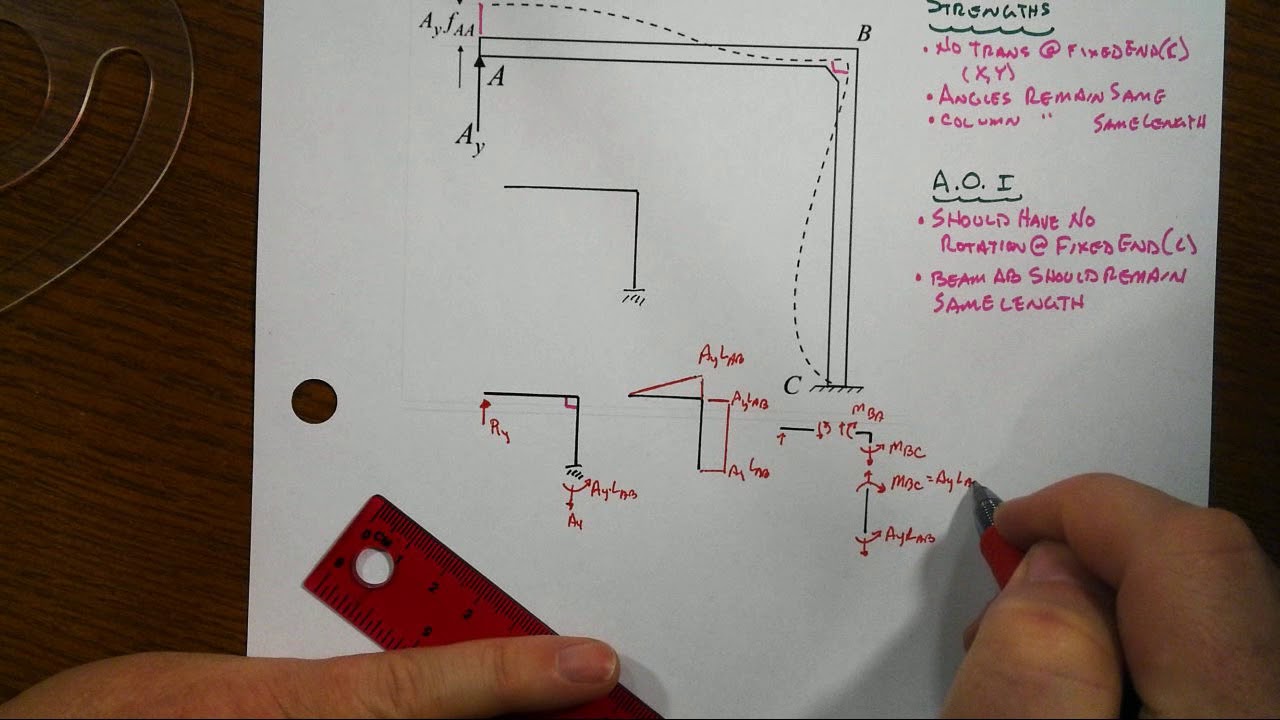 STRENGTHS
• NO TRANS @ FIXED END(C)
(X,Y)
• ANGLES REMAIN SAME
• COLUMN " SAME LENGTH
A.O.I
• SHOULD HAVE NO
ROTATION @ FIXED END(C)
• BEAM AB SHOULD REMAIN
SAME LENGTH
AyfAA
B
A
Ay
C
AyLAB
AyLAB
AyLAB
Ry
Ay·LAB
Ay
MBA
MBC
MBC=AyLA
AyLAB
0 CM 1
2
3